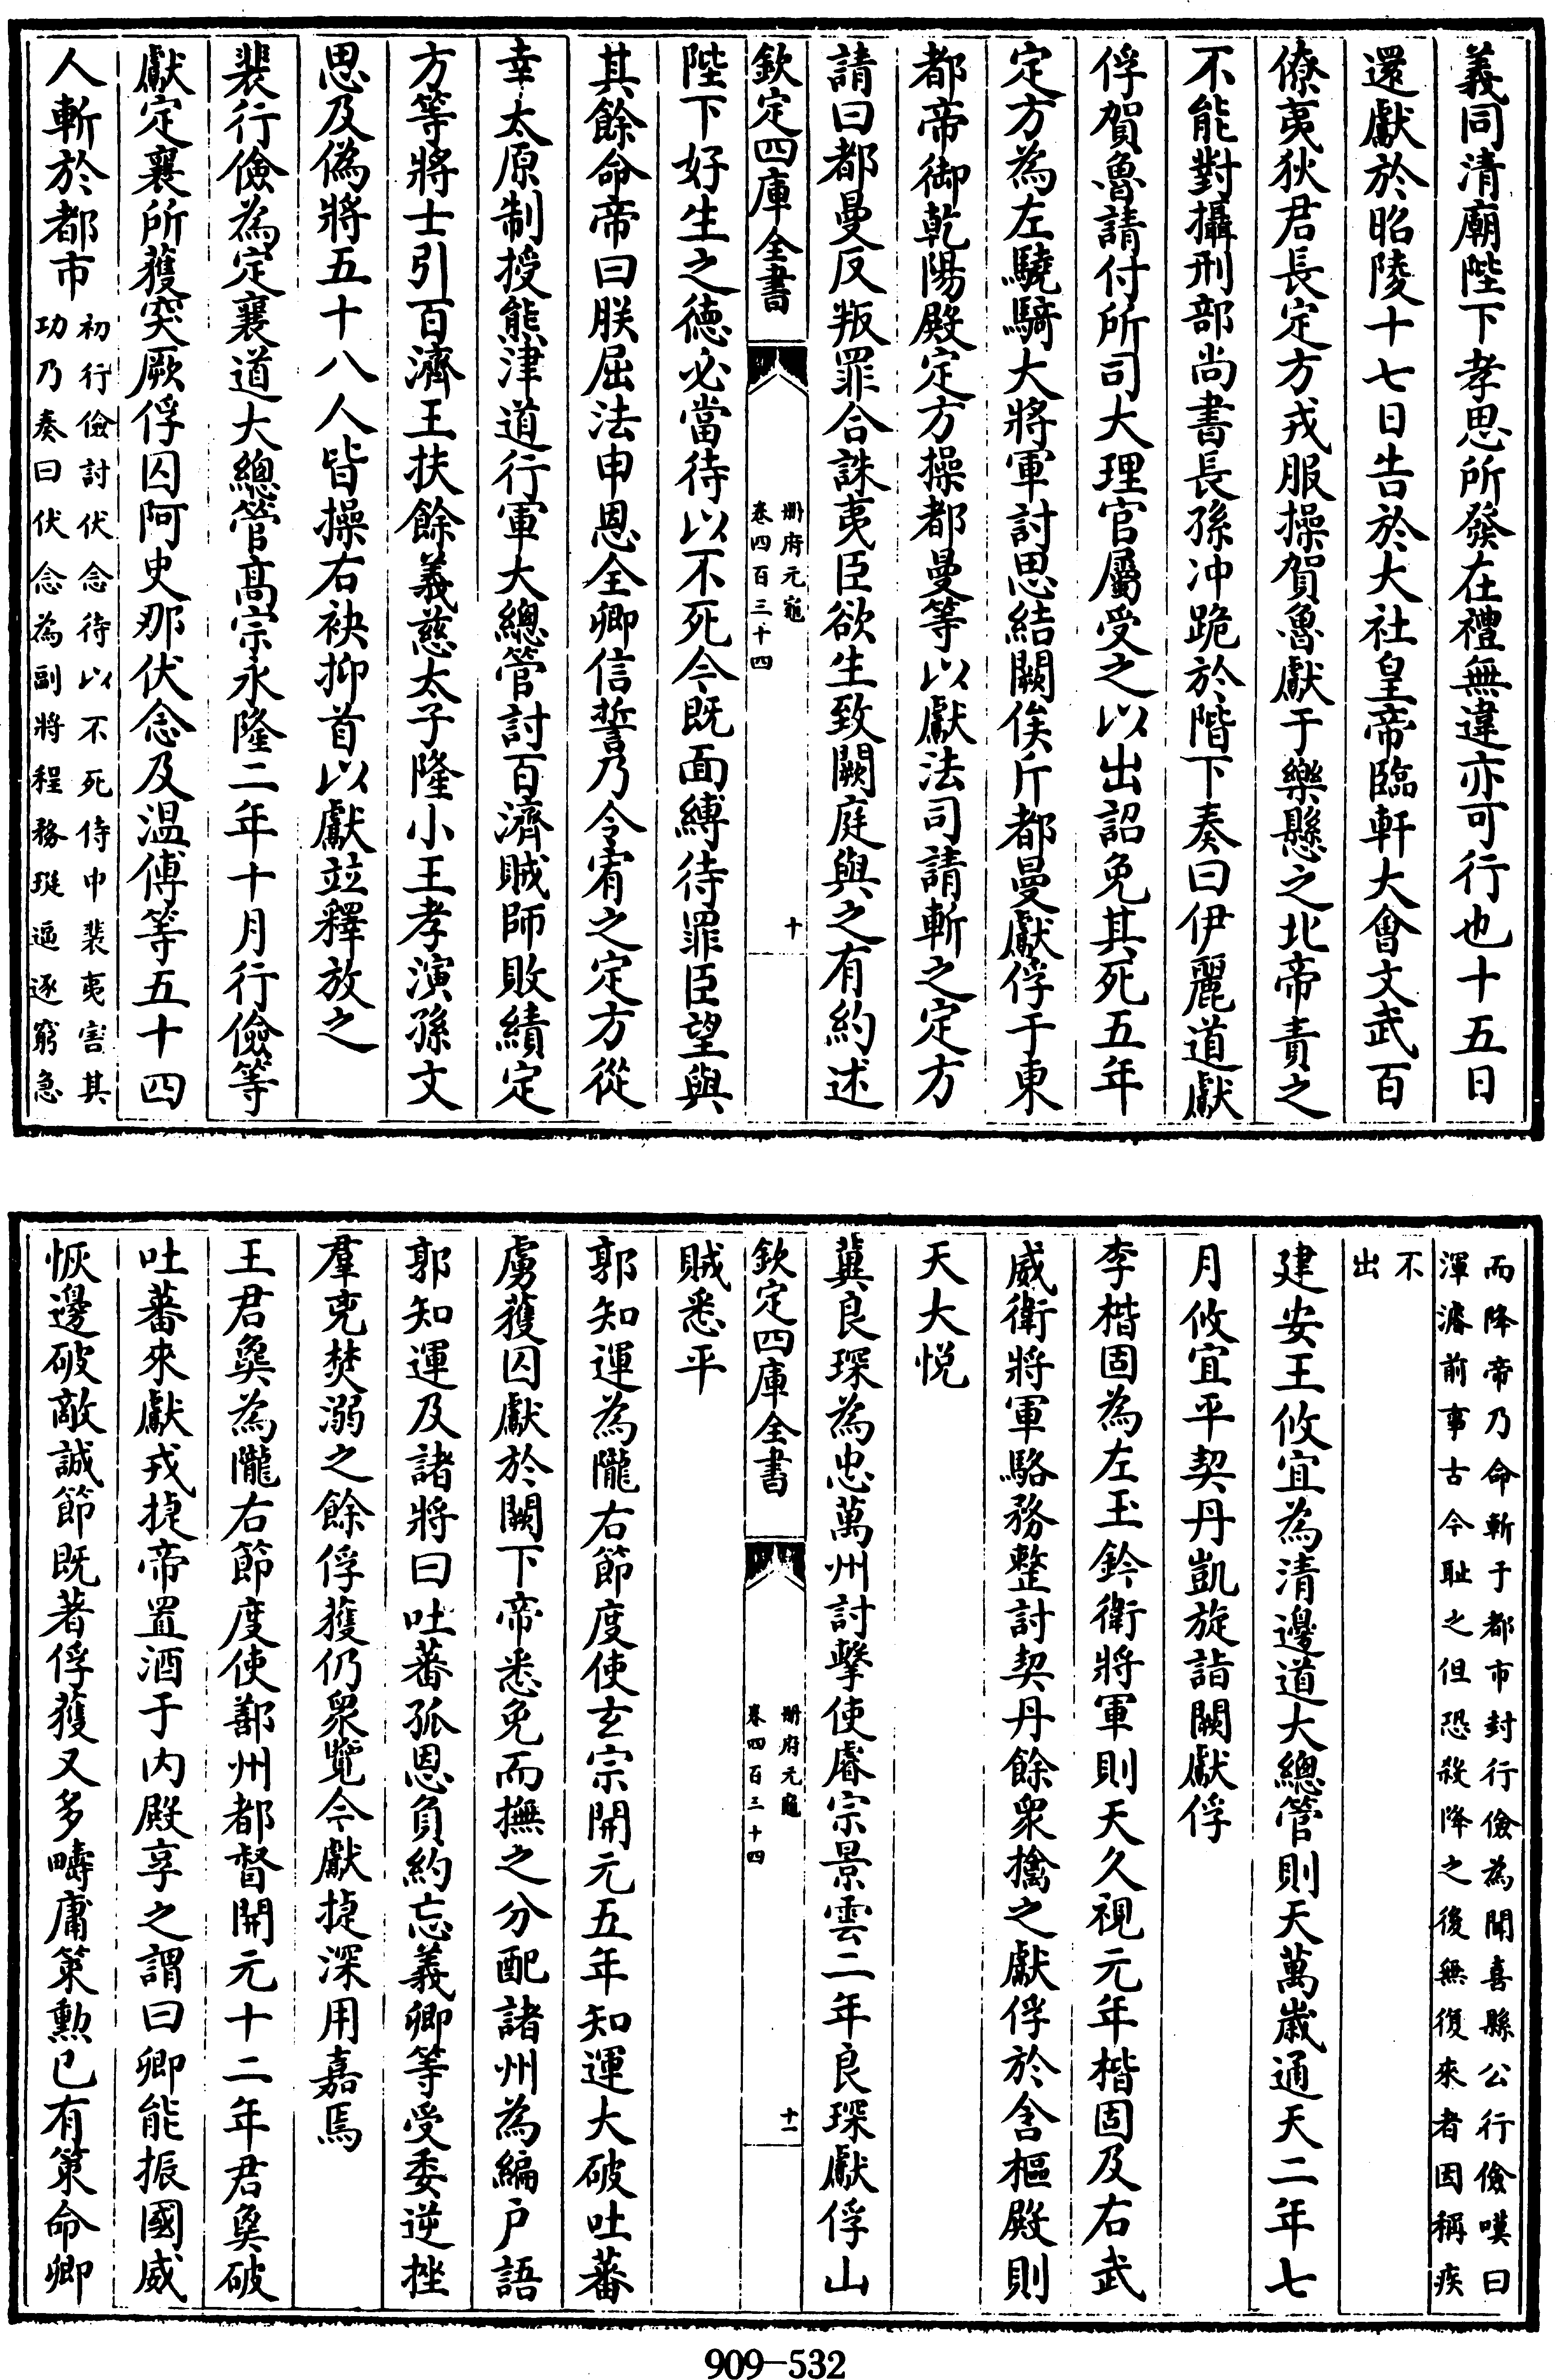 義同清廟陛下孝思所發在禮無違亦可行也十五日
還獻於昭陵十七日告於大社皇帝臨軒大會文武百
僚夷狄君長定方戎服操賀魯獻于樂懸之北帝責之
不能對攝刑部尚書長孫冲跪於階下奏曰伊麗道獻
俘賀魯請付所司大理官屬受之以出詔免其死五年
定方為左驍騎大將軍討思結闕俟斤都曼獻俘于東
都帝御乾陽殿定方操都曼等以獻法司請斬之定方
請曰都曼反叛罪合誅夷臣欲生致闕庭與之有約述
欽定四庫全書
册府元龜
卷四百三十四
十
陛下好生之德必當待以不死今既面縛待罪臣望與
其餘命帝曰朕屈法申恩全卿信誓乃令宥之定方從
幸太原制授熊津道行軍大總管討百濟賊師敗績定
方等將士引百濟王扶餘義慈太子隆小王孝演孫文
思及偽將五十八人皆操右袂抑首以獻並釋放之
裴行儉為定襄道大總管髙宗永隆二年十月行儉等
獻定襄所獲突厥俘囚阿史那伏念及温傅等五十四
人斬於都市
初行儉討伏念待以不死侍中裴夷害其
功乃奏曰伏念為副將程務珽逼逐窮急
而降帝乃命斬于都市封行儉為聞喜縣公行儉嘆曰
渾濬前事古今耻之但恐殺降之後無復來者因稱疾
不
出
建安王攸宜為清邊道大總管則天萬歲通天二年七
月攸宜平契丹凱旋詣闕獻俘
李楷固為左玉鈐衛將軍則天久視元年楷固及右武
威衛將軍駱務整討契丹餘衆擒之獻俘於含樞殿則
天大悅
冀良琛為忠萬州討擊使睿宗景雲二年良琛獻俘山
欽定四庫全書
册府元龜
卷四百三十四
十一
賊悉平
郭知運為隴右節度使玄宗開元五年知運大破吐蕃
虜獲囚獻於闕下帝悉免而撫之分配諸州為編户語
郭知運及諸將曰吐蕃孤恩負約忘義卿等受委逆挫
羣兇焚溺之餘俘獲仍衆覽今獻捷深用嘉焉
王君㚟為隴右節度使鄯州都督開元十二年君㚟破
吐蕃來獻戎捷帝置酒于内殿享之謂曰卿能振國威
恢邊破敵誠節既著俘獲又多疇庸策勲已有策命卿
909-532